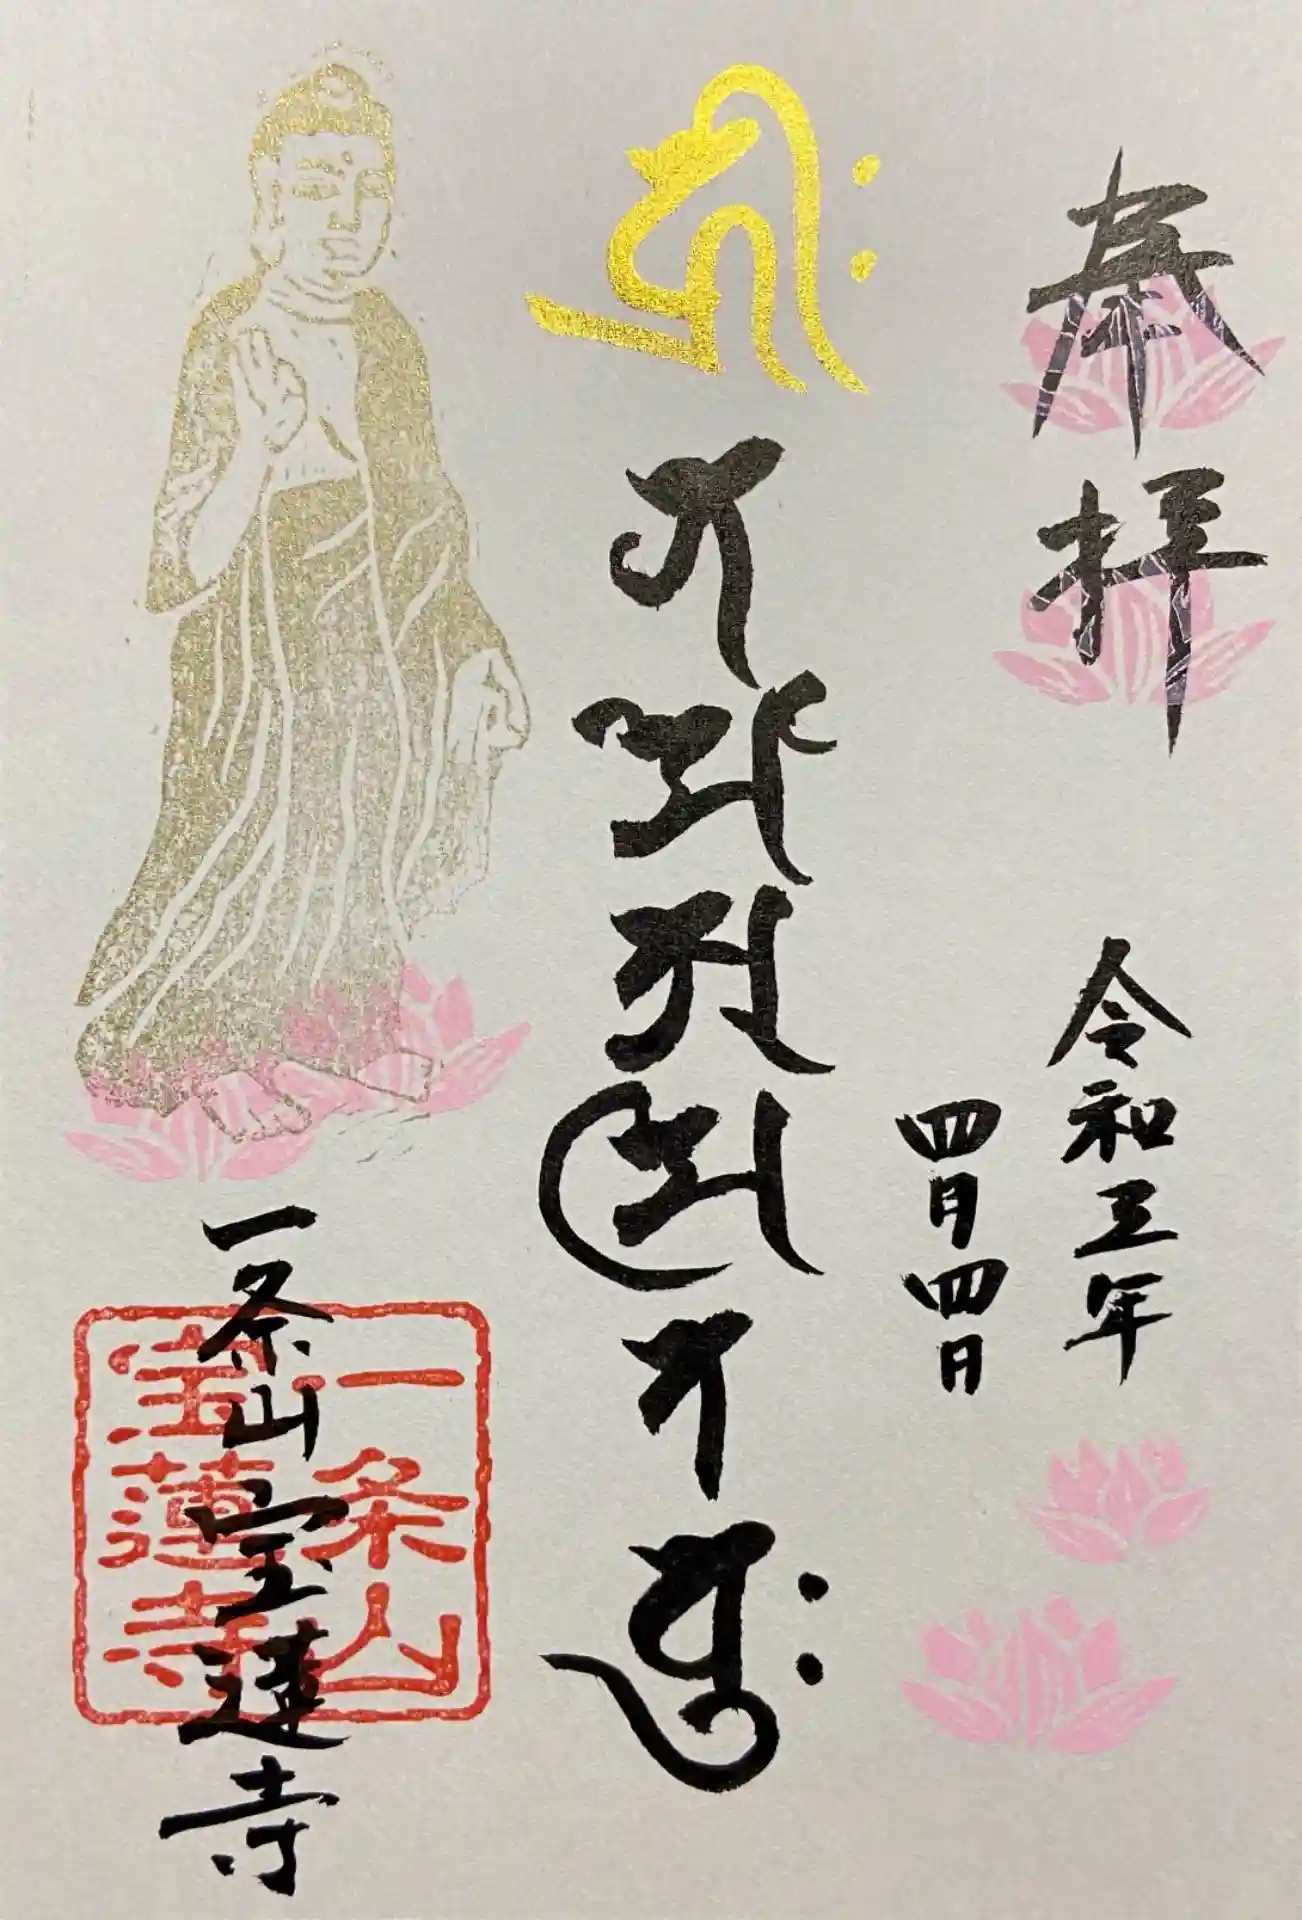 奉拝
令和五年
四月四日
𑖮𑖿𑖨𑖱𑖾
𑖡𑖦𑖺𑖀𑖦𑖰𑖝𑖤𑖲𑖾
一条山宝蓮寺
一条山
宝蓮寺